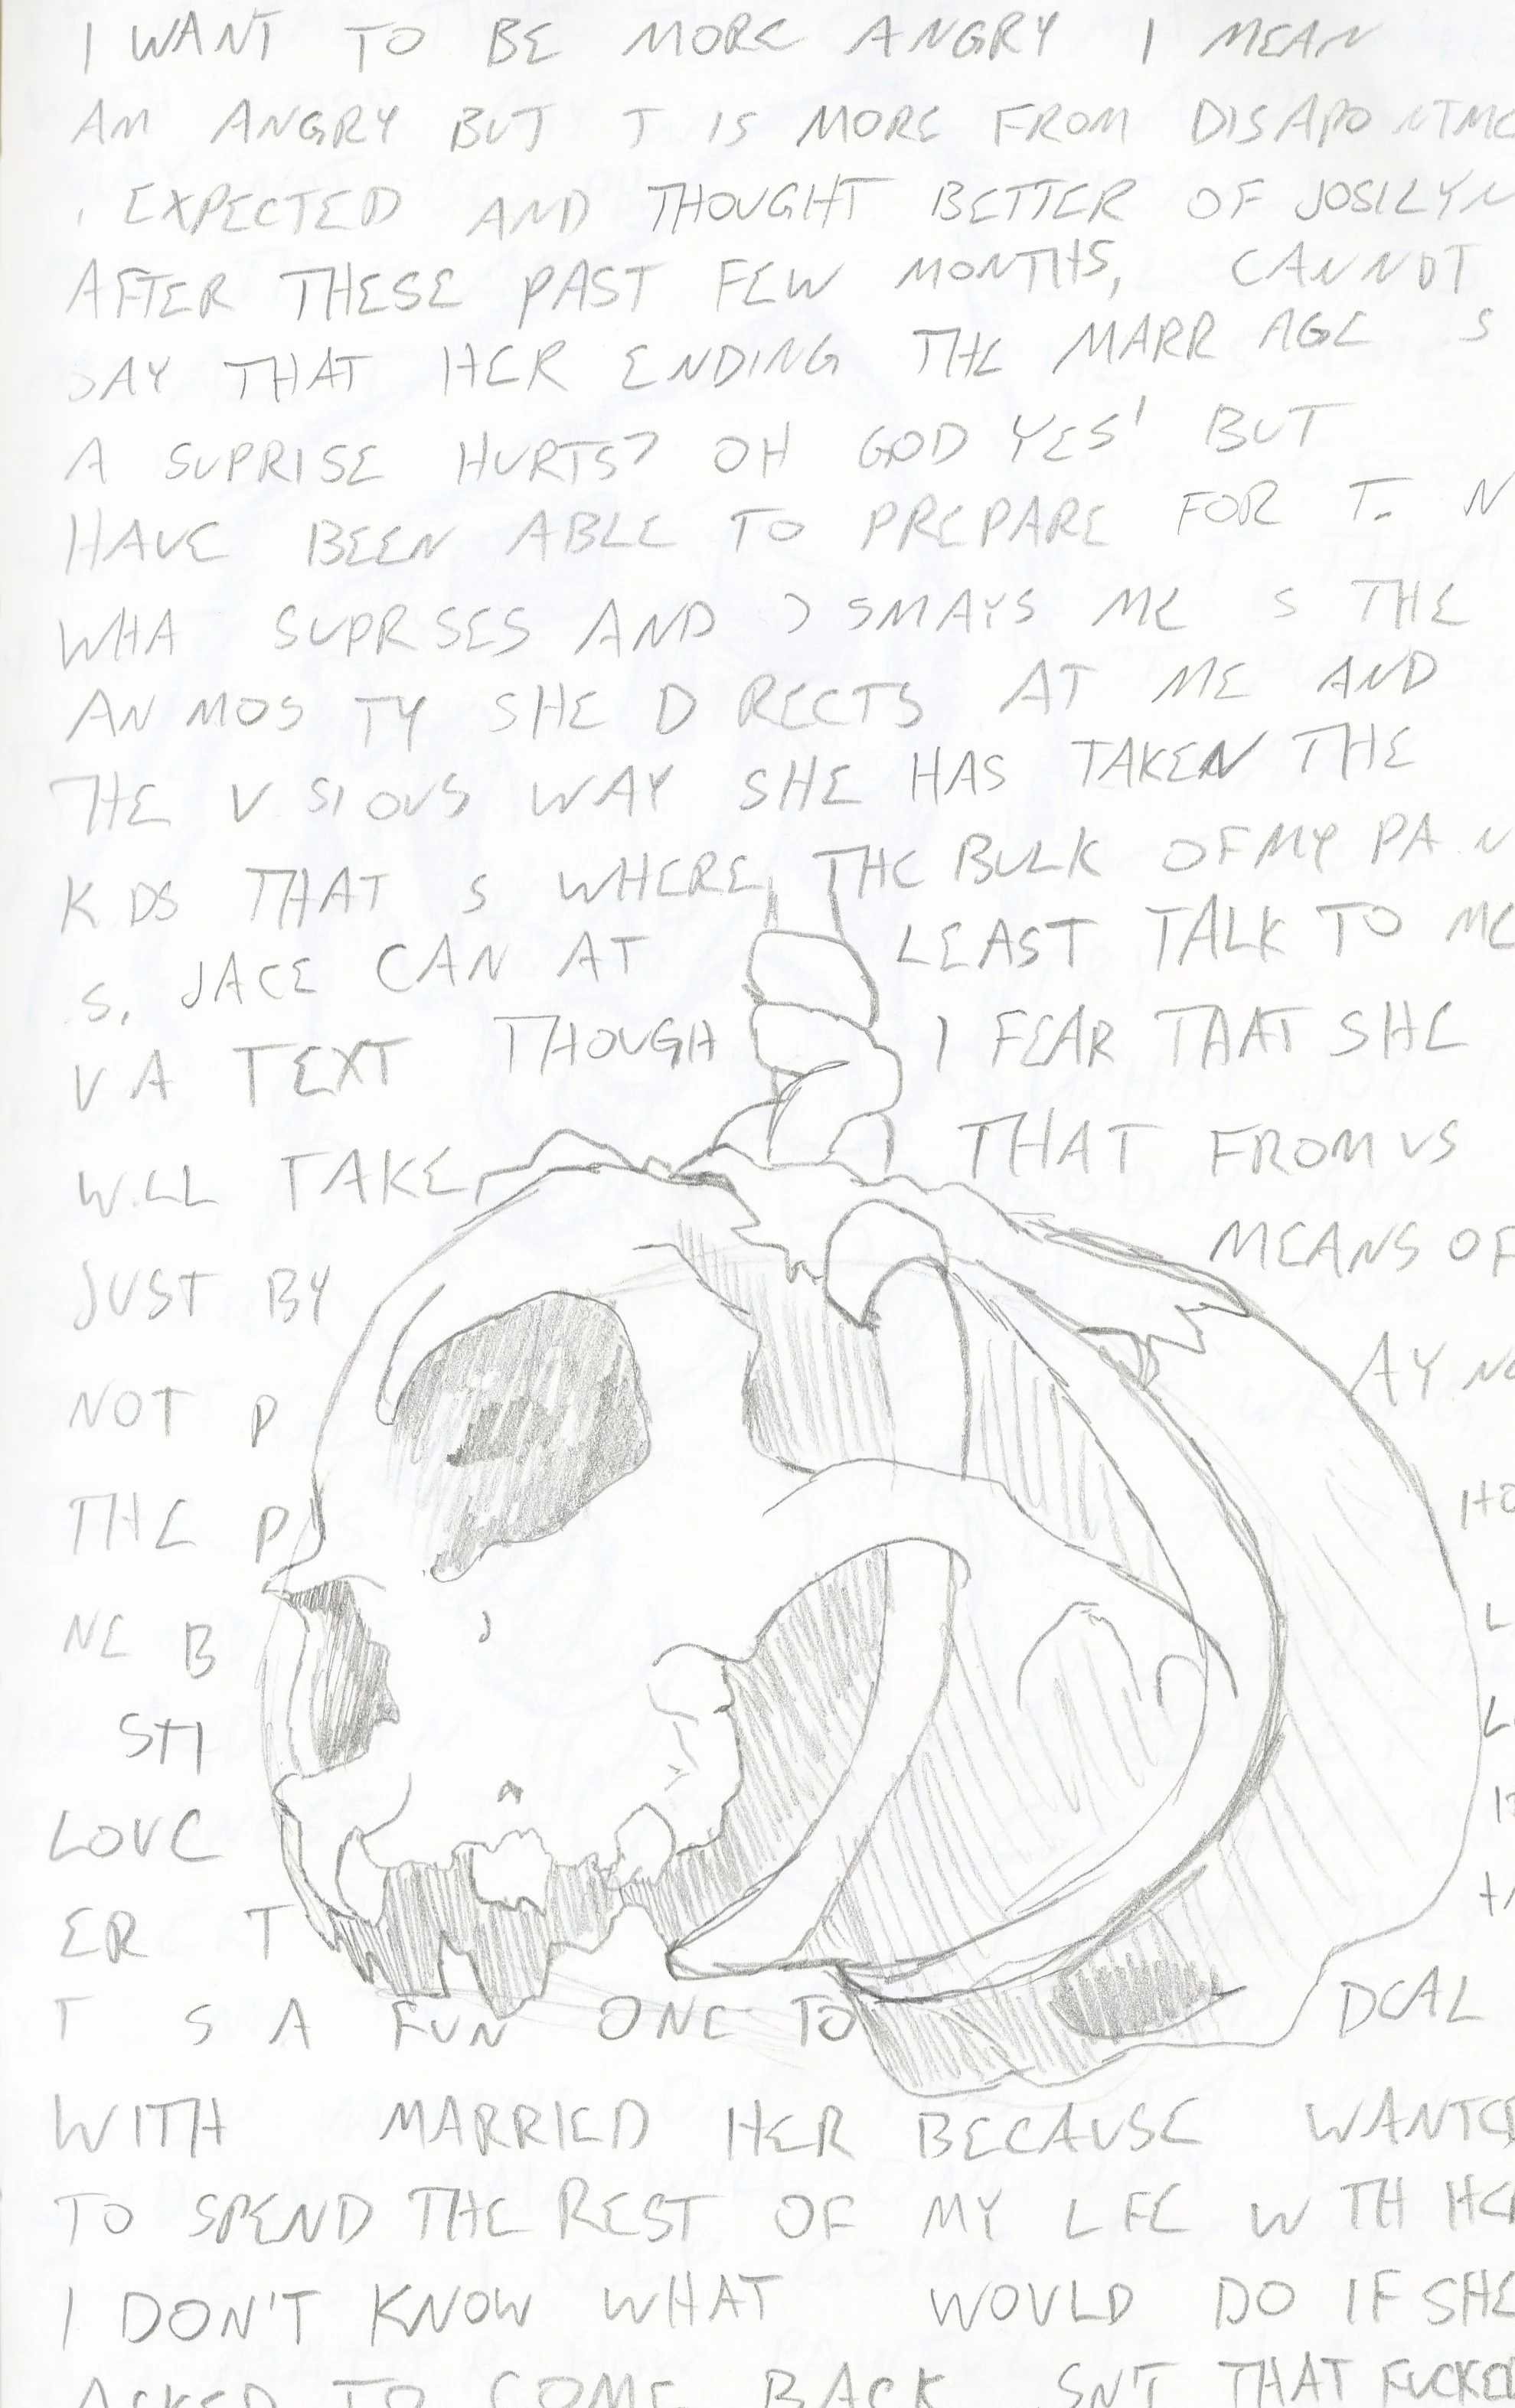 I WANT TO BE MORE ANGRY I MEAN
AM ANGRY BUT T IS MORE FROM DISAPO NTME
I EXPECTED AND THOUGHT BETTER OF JOSILYN
AFTER THESE PAST FEW MONTHS, CANNOT
SAY THAT HER ENDING THE MARR AGE S
A SUPRISE HURTS? OH GOD YES! BUT
HAVE BEEN ABLE TO PREPARE FOR T. N
WHA SUPR SES AND D SMAYS ME S THE
AN MOS TY SHE D RECTS AT ME AND
THE V SIOUS WAY SHE HAS TAKEN THE
K DS THAT S WHERE THE BULK OF MY PA N
S. JACE CAN AT LEAST TALK TO ME
V A TEXT THOUGH I FEAR THAT SHE
W LL TAKE THAT FROM US
JUST BY MEANS OF
NOT P AY NG
THE P HO
NE B L
STI L
LOVE
ER T
T S A FUN ONE TO DEAL
WITH MARRIED HER BECAUSE WANTED
TO SPEND THE REST OF MY L FE W TH HER
I DON'T KNOW WHAT WOULD DO IF SHE
ASKED TO COME BACK SN'T THAT FUCKED